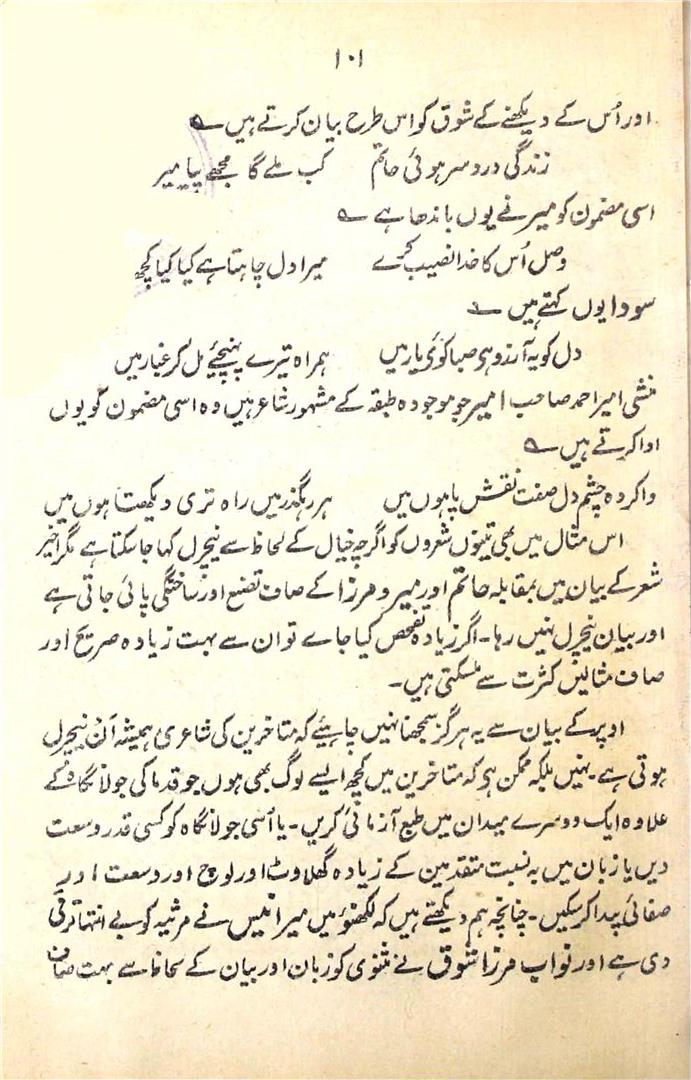 ۱۰۱
اور اُس کے دیکھنے کے شوق کو اس طرح بیان کرتے ہیں ؎
زندگی دردسر ہوئی حاتم کب ملے گا مجھے پیا میر
اسی مضمون کو میر نے یوں باندھا ہے ؎
وصل اُس کا خدا نصیب کرے میرا دل چاہتا ہے کیا کیا کچھ
سودا یوں کہتے ہیں ؎
دل کو یہ آرزو ہی صبا کوئی یار میں ہمراہ تیرے پہنچیے مل کر غبار میں
منشی امیر احمد صاحب امیر جو موجودہ طبقہ کے مشہور شاعر ہیں وہ اسی مضمون کو یوں
ادا کرتے ہیں ؎
وا کردہ چشم دل صفت نقش پا ہوں میں ہر رہگذر میں راہ تری دیکھتا ہوں میں
اس مثال میں بھی تینوں شعروں کو اگرچہ خیال کے لحاظ سے نیچرل کہا جا سکتا ہے مگر اخیر
شعر کے بیان میں بمقابلہ حاتم اور میر و مرزا کے صاف تصنع اور ساختگی پائی جاتی ہے
اور بیان نیچرل نہیں رہا۔ اگر زیادہ تفحص کیا جاے تو ان سے بہت زیادہ صریح اور
صاف مثالیں کثرت سے ملسکتی ہیں۔
اوپر کے بیان سے یہ ہرگز سمجھنا نہیں چاہیئے کہ متاخرین کی شاعری ہمیشہ اَن نیچرل
ہوتی ہے۔ نہیں بلکہ ممکن ہی کہ متاخرین میں کچھ ایسے لوگ بھی ہوں جو قدما کی جولانگاہ کے
علاوہ ایک دوسرے میدان میں طبع آزمائی کریں۔ یا اُسی جولانگاہ کو کسی قدر وسعت
دیں یا زبان میں بہ نسبت متقدمین کے زیادہ گھلاوٹ اور لوچ اور وسعت اور
صفائی پیدا کر سکیں۔ چنانچہ ہم دیکھتے ہیں کہ لکھنؤ میں میر انیس نے مرثیہ کو بے انتہا ترقی
دی ہے اور نواب مرزا شوق نے مثنوی کو زبان اور بیان کے لحاظ سے بہت صاف